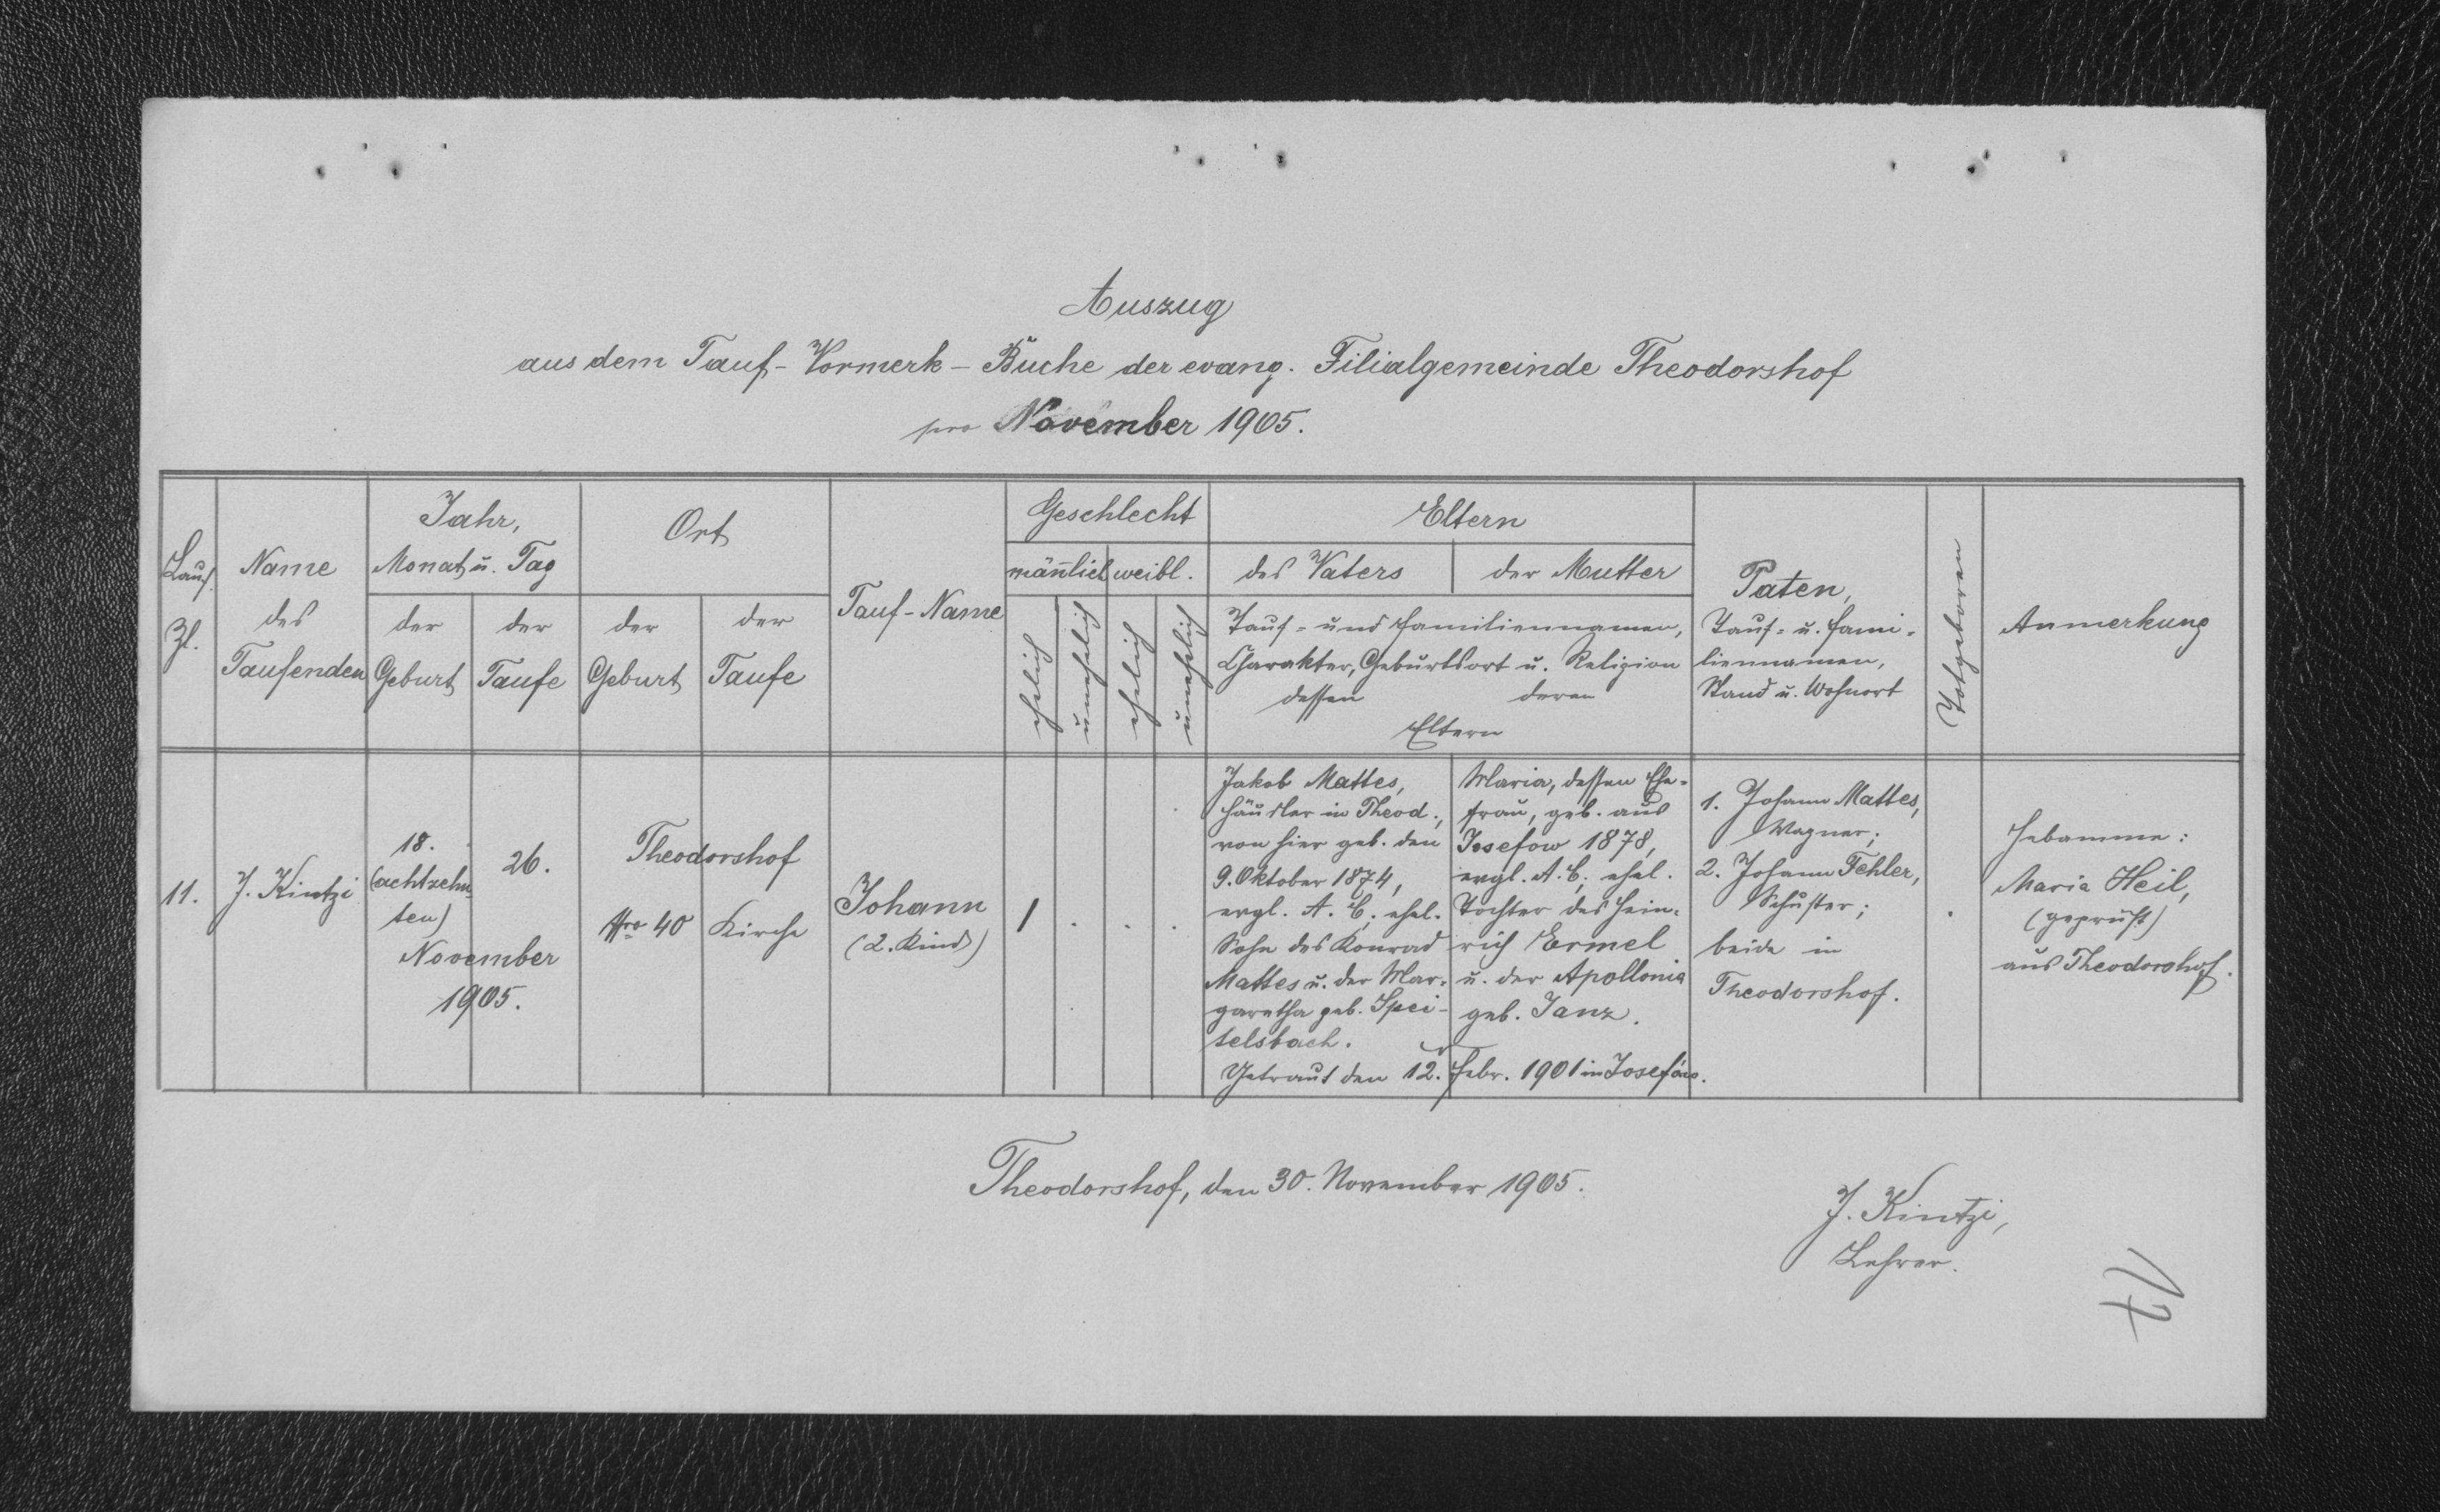 Auszug
aus dem Tauf-Vormerk-Buche der evang. Filialgemeinde Theodorshof
pro November 1905.
Lauf. Zl.
Name
des
Taufenden
Jahr,
Monat u. Tag
der
Geburt
der
Taufe
Ort
der
Geburt
der
Taufe
Tauf-Name
Geschlecht
männlich
weibl.
ehelich
unehelich
ehelich
unehelich
Eltern
des Vaters
der Mutter
Tauf- und Familiennamen,
Charakter, Geburtsort u. Religion
dessen
deren
Eltern
Paten,
Tauf- u. Fami-
liennamen,
Stand u. Wohnort
Totgeboren
Anmerkung
11.
J. Kintzi
18.
(achtzehn-
ten)
26.
November
1905.
Theodorshof
Nro 40
Kirche
Johann
(2. Kind)
1
Jakob Mattes,
Häusler in Theod.,
von hier geb. den
9. Oktober 1874,
evgl. A. C., ehel.
Sohn des Konrad
Mattes u. der Mar-
garetha geb. Spei-
telsbach.
Maria, dessen Ehe-
frau, geb. aus
Josefow 1878,
evgl. A. C., ehel.
Tochter des Hein-
rich Ermel
u. der Apollonia
geb. Janz.
Getraut den 12. Febr. 1901 in Josefów.
1. Johann Mattes,
Wagner;
2. Johann Fehler,
Schuster;
beide in
Theodorshof.
Hebamme:
Maria Heil,
(geprüft)
aus Theodorshof.
Theodorshof, den 30. November 1905.
J. Kintzi,
Lehrer.
17